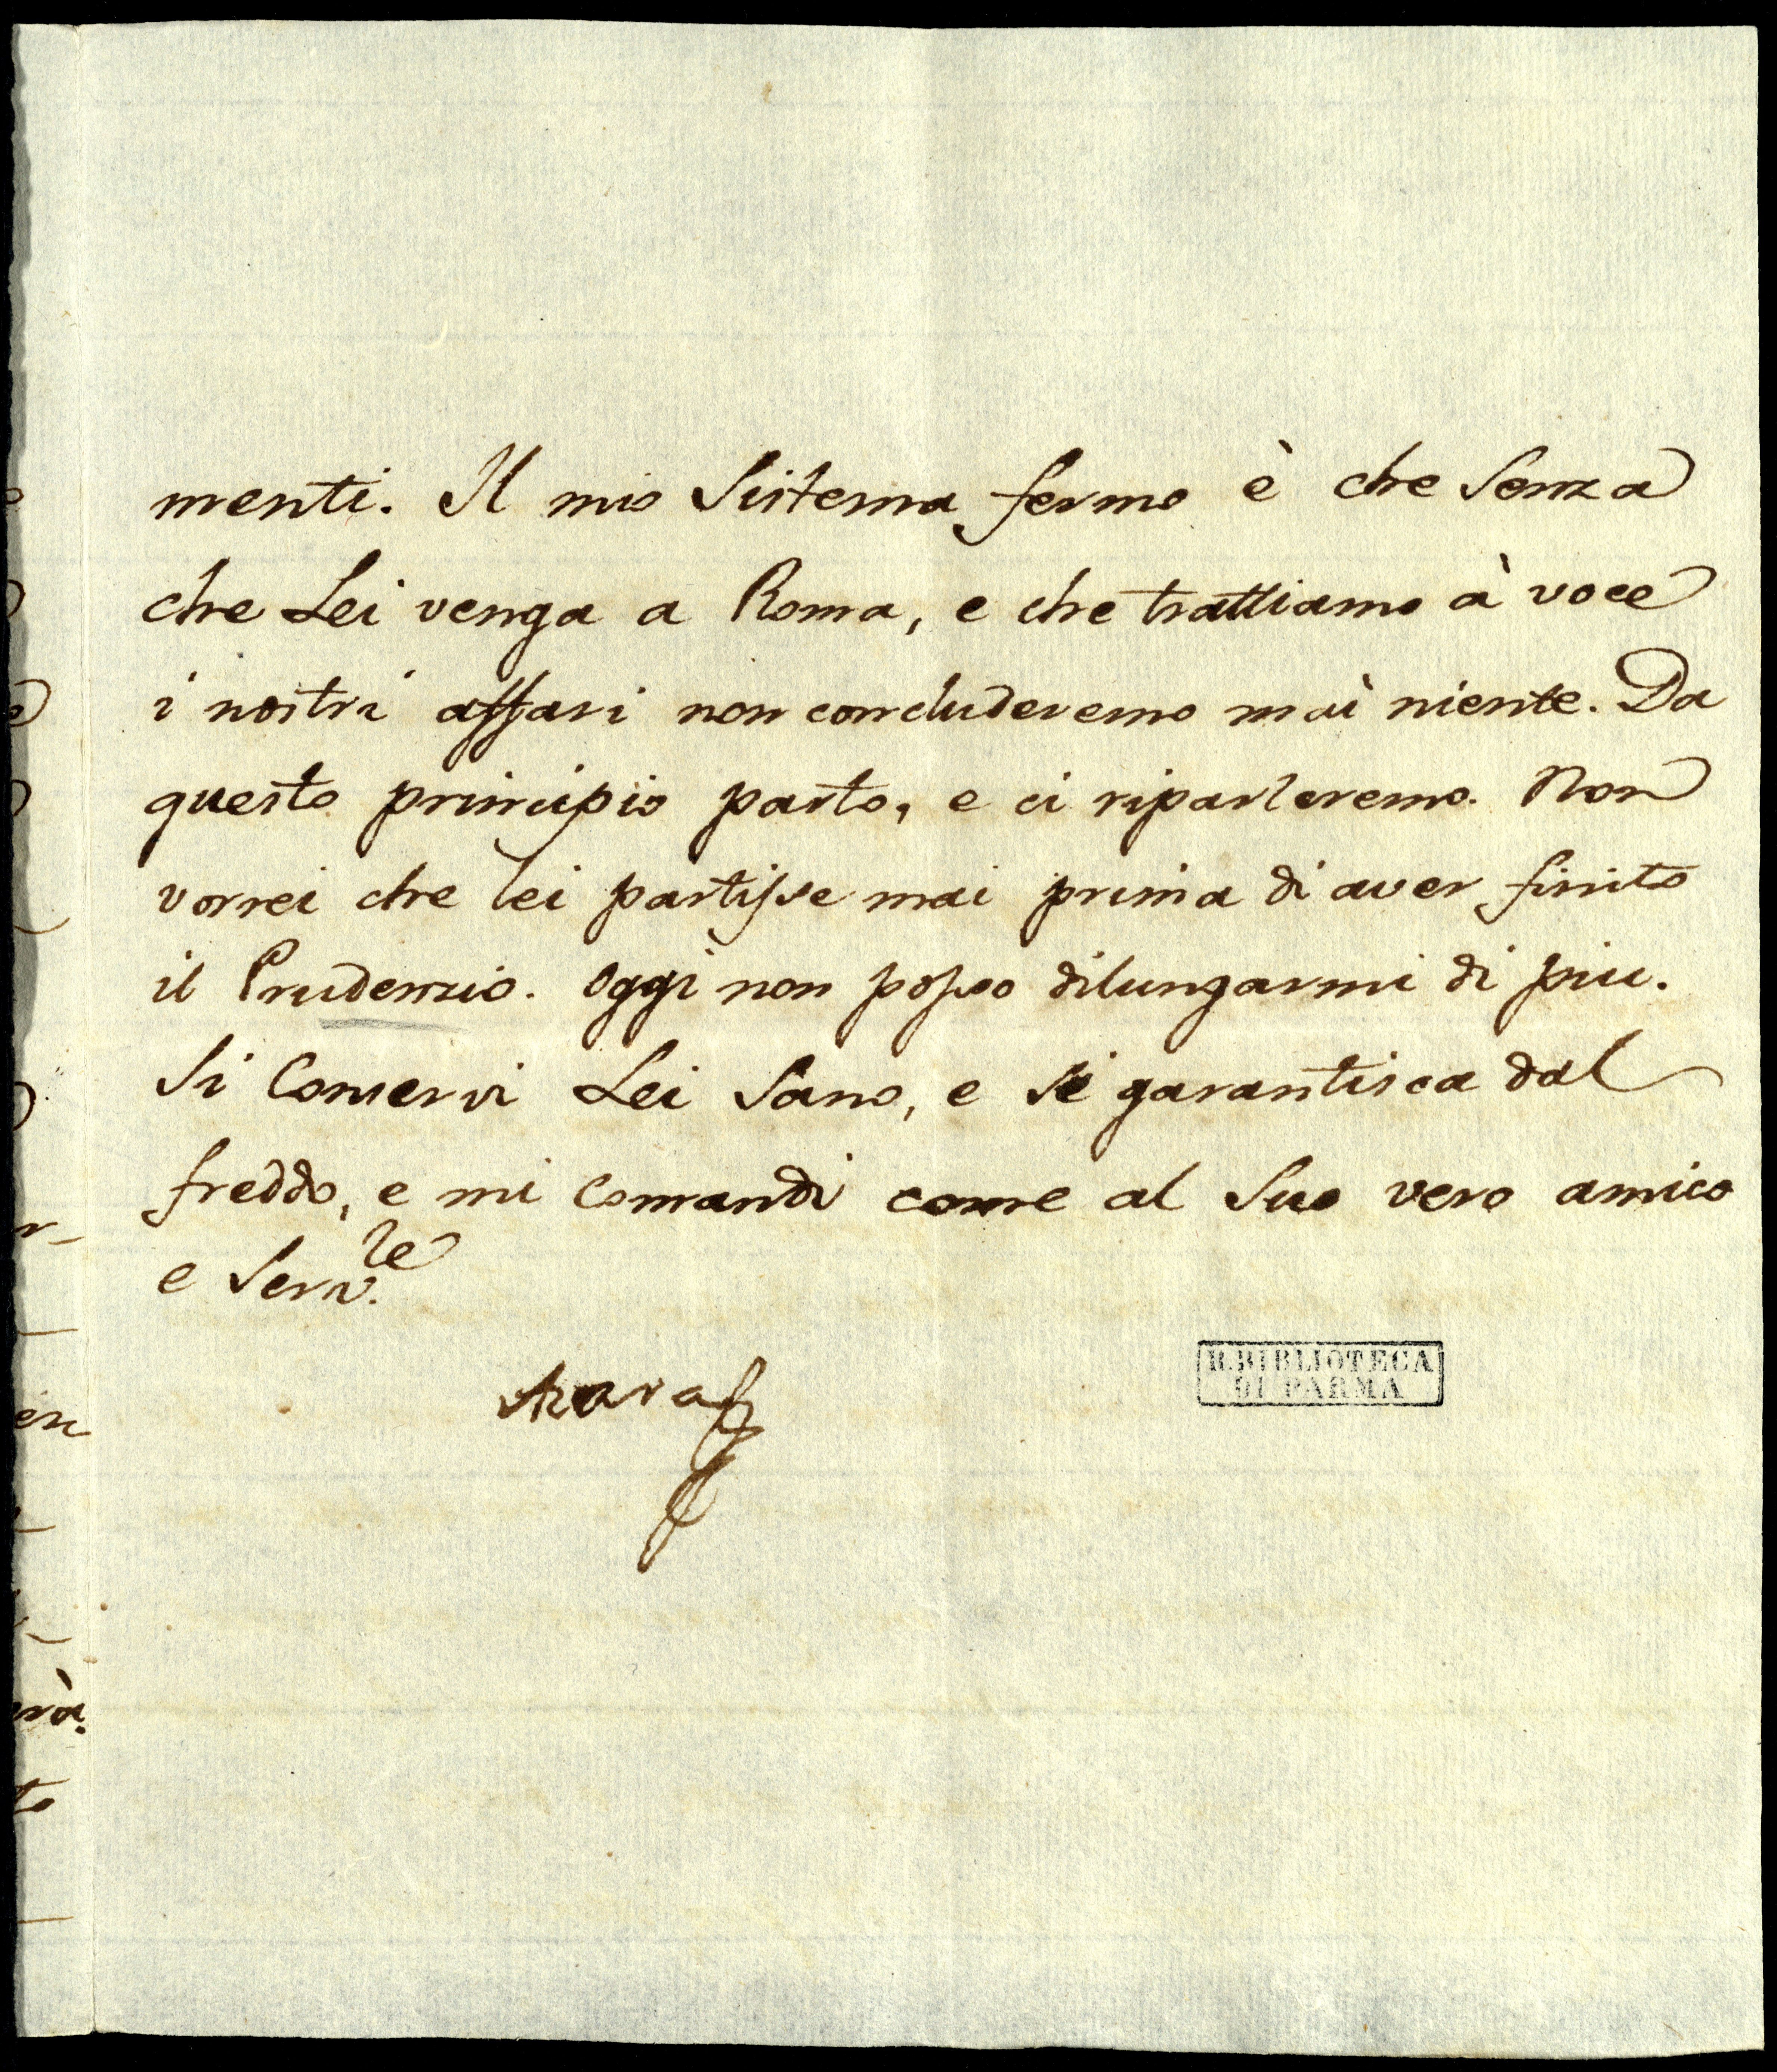 menti. Il mio Sistema fermo è che Senza
che Lei venga a Roma, e che trattiamo à voce
i nostri affari non concluderemo mai niente. Da
questo principio parto, e ci riparleremo. Non
vorrei che lei partisse mai prima di aver finito
il Prudenzio. Oggi non posso dilungarmi di piu.
Si Conservi Lei Sano, e si garantisca dal
freddo, e mi Comandi come al Suo vero amico
e Serv.le
Azara
R. BIBLIOTECA
DI PARMA
en
to